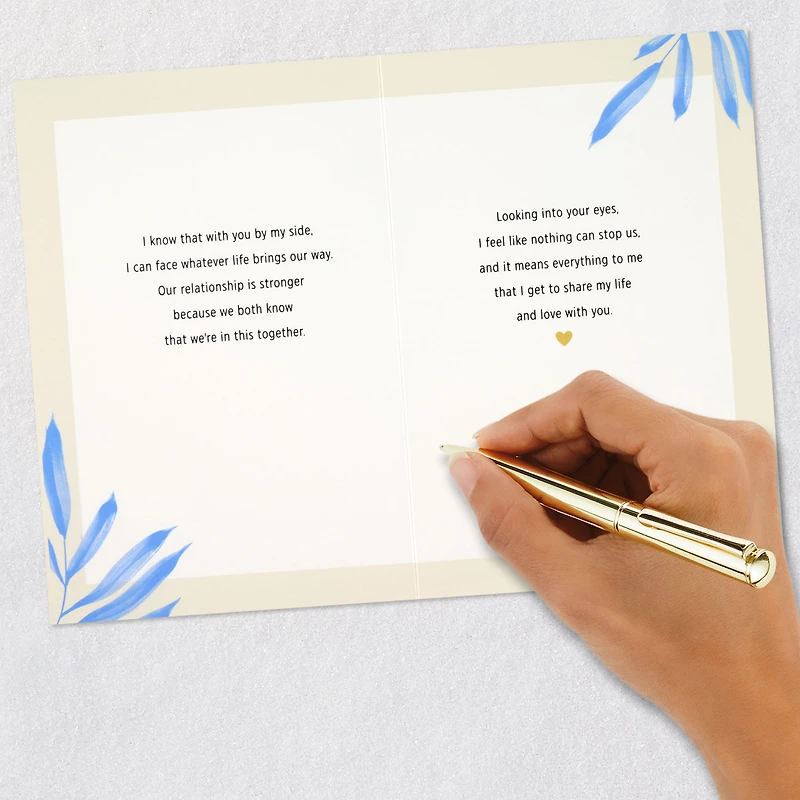 I know that with you by my side,
I can face whatever life brings our way.
Our relationship is stronger
because we both know
that we're in this together.
Looking into your eyes,
I feel like nothing can stop us,
and it means everything to me
that I get to share my life
and love with you.